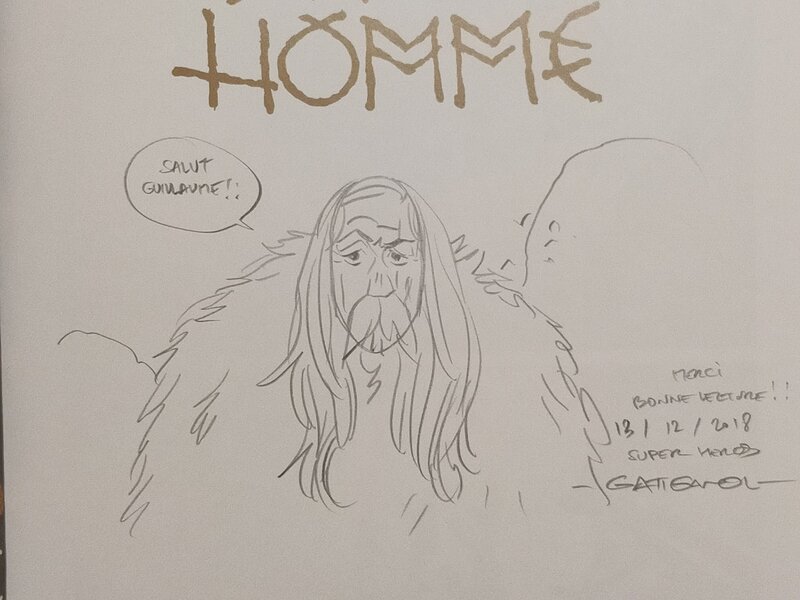 HOMME
SALUT
GUILLAUME!!
MERCI
BONNE LECTURE!!
13 / 12 / 2018
SUPER HEROS
GATIGNOL